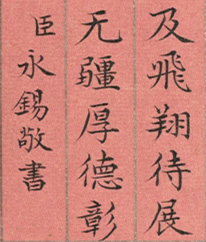 及飛翔待展
无疆厚德彰
臣永錫敬書